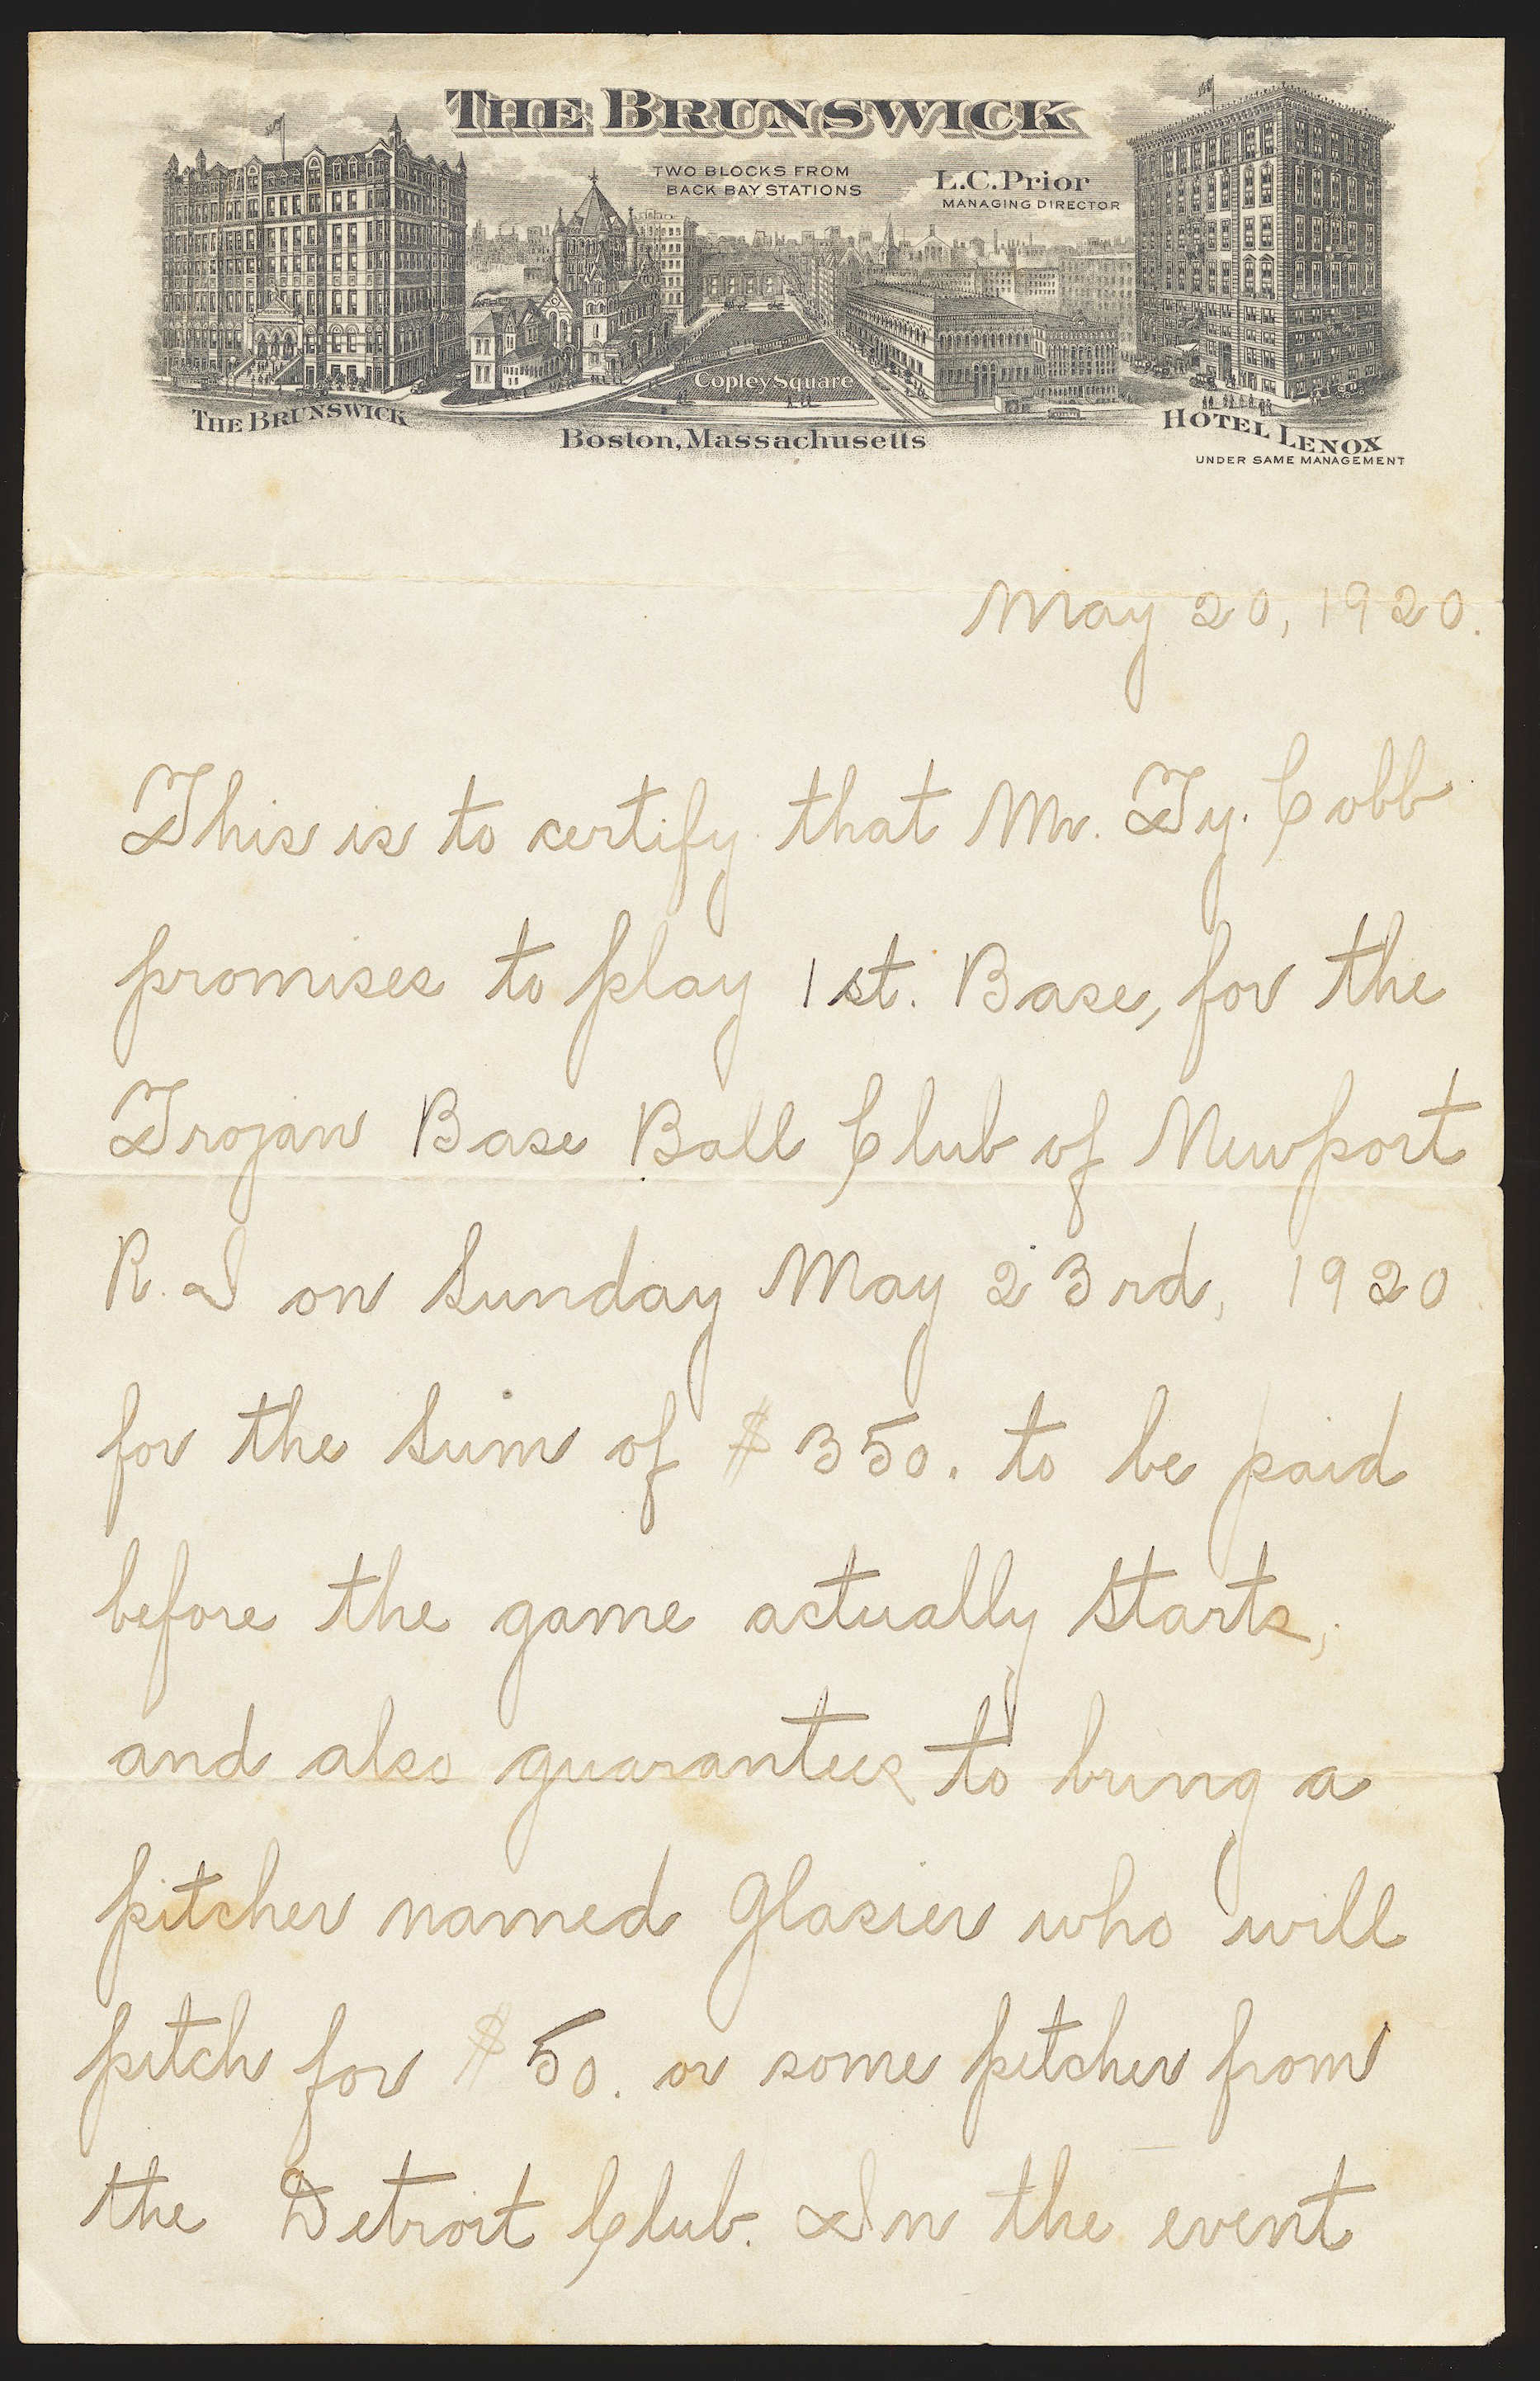 THE BRUNSWICK
TWO BLOCKS FROM
BACK BAY STATIONS
L.C. Prior
MANAGING DIRECTOR
Copley Square
THE BRUNSWICK
Boston, Massachusetts
HOTEL LENOX
UNDER SAME MANAGEMENT
May 20, 1920.
This is to certify that Mr. Ty. Cobb
promises to play 1st. Base, for the
Trojan Base Ball Club of Newport
R. I on Sunday May 23rd, 1920
for the Sum of $350. to be paid
before the game actually starts,
and also guarantees to bring a
pitcher named Glasier who will
pitch for $50. or some pitcher from
the Detroit Club. In the event